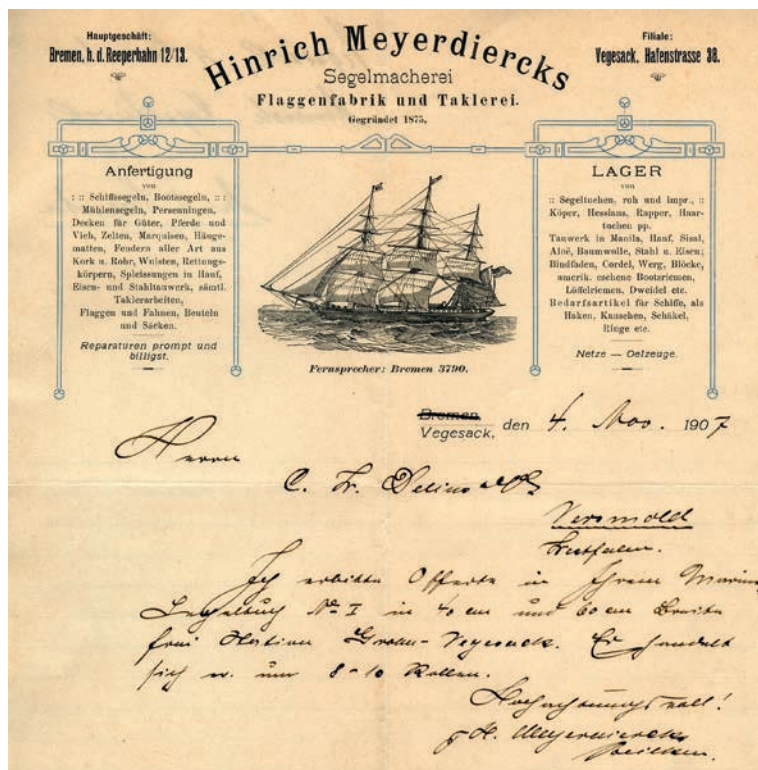 Hauptgeschäft:
Bremen, h. d. Reeperbahn 12/13.
Hinrich Meyerdiercks
Segelmacherei
Flaggenfabrik und Taklerei.
Gegründet 1875.
Filiale:
Vegesack, Hafenstrasse 38.
Anfertigung
von
: :: Schiffssegeln, Bootssegeln, :: :
Mühlensegeln, Persenningen,
Decken für Güter, Pferde und
Vieh, Zelten, Marquisen, Hänge-
matten, Fendern aller Art aus
Kork u. Rohr, Wulsten, Rettungs-
körpern, Spleissungen in Hanf,
Eisen- und Stahltauwerk, sämtl.
Taklerarbeiten,
Flaggen und Fahnen, Beuteln
und Säcken.
Reparaturen prompt und
billigst.
LAGER
von
:: Segeltuchen, roh und impr., ::
Köper, Hessians, Rapper, Haar-
tuchen pp.
Tauwerk in Manila, Hanf, Sisal,
Aloë, Baumwolle, Stahl u. Eisen;
Bindfaden, Cordel, Werg, Blöcke,
amerik. eschene Bootsriemen,
Löffelriemen, Dweidel etc.
Bedarfsartikel für Schiffe, als
Haken, Kauschen, Schäkel,
Ringe etc.
Netze — Oelzeuge.
Fernsprecher: Bremen 3790.
Bremen
Vegesack, den 4. Nov. 1907
Herrn
C. Fr. Delius
Versmold
Westfalen.
Ich erbitte Offerte in Ihrem Marine
Segeltuch No I in 40 cm und 60 cm Breite
frei Station Grohn-Vegesack. Es handelt
sich um 8-10 Rollen.
Hochachtungsvoll!
H. Meyerdiercks